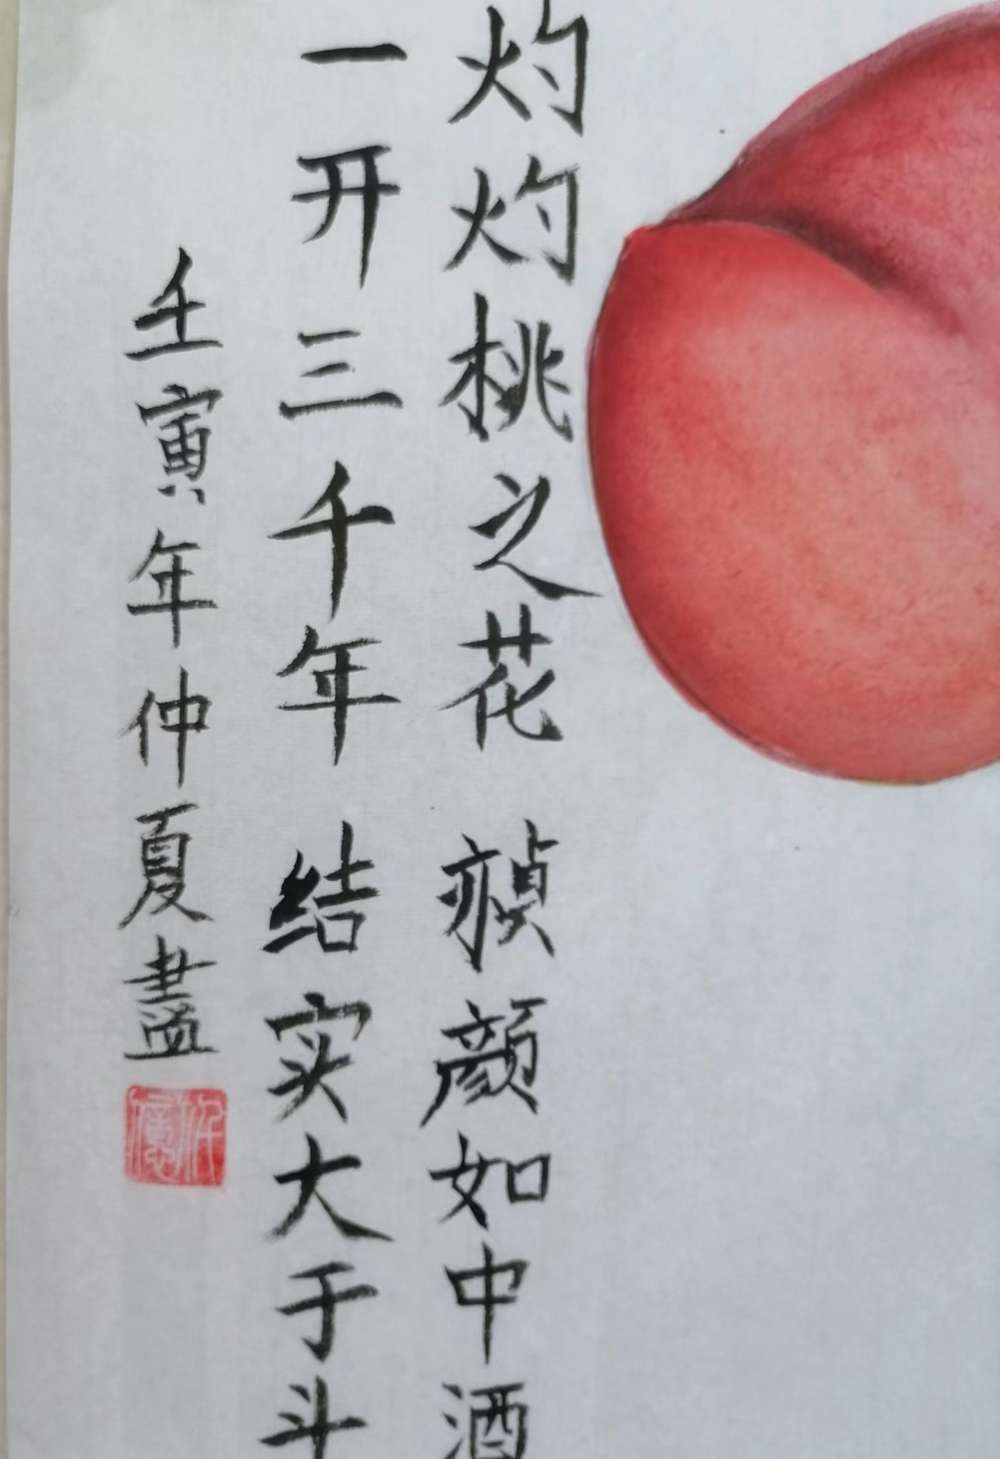 灼灼桃之花 赪颜如中酒
一开三千年 结实大于斗
壬寅年仲夏畫